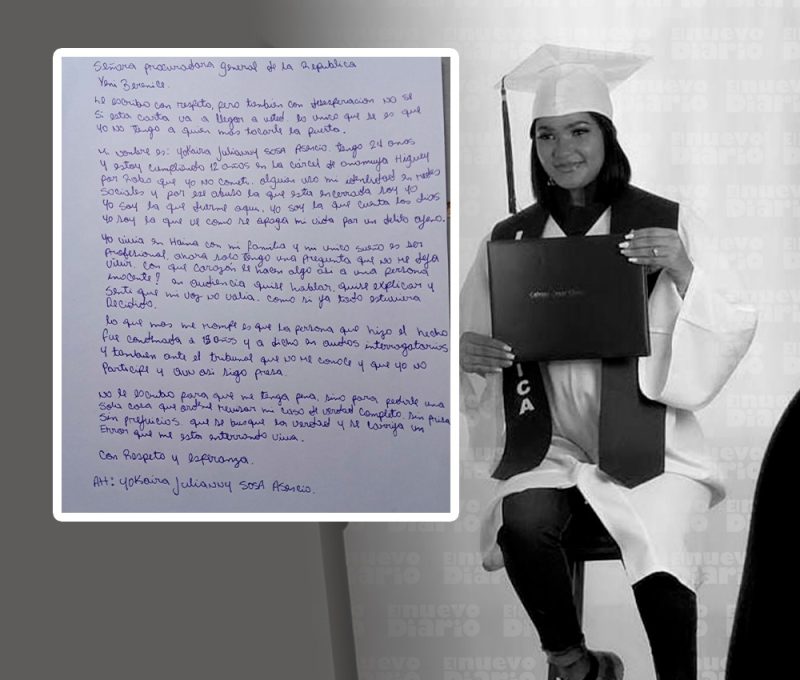 Señora procuradora general de la Republica
Yeni Berenice.
Le escribo con respeto, pero tambien con desesperacion no se
si esta carta va a llegar a usted lo unico que se es que
yo no tengo a quien mas tocarle la puerta.
Mi nombre es: Yokaira Julianny Sosa Asencio. tengo 24 anos
y estoy cumpliendo 12 años en la cárcel de anamuya Higuey
por Robo que yo no cometí. alguien uso mi identidad en redes
sociales y por ese abuso la que esta encerrada soy yo
yo soy la que duerme aqui. yo soy la que cuenta los dias
yo soy la que ve como se apaga mi vida por un delito ajeno.
yo vivia en Haina con mi familia y mi unico sueño es ser
Profesional. ahora solo tengo una pregunta que no me deja
vivir. con que corazón le hacen algo asi a una persona
inocente? en audiencia quise hablar, quise explicar y
senti que mi voz no valia. como si ya todo estuviera
Decidido.
lo que mas me rompe es que la persona que hizo el hecho
fue condenada a años y a dicho en audios interrogatorios
y tambien ante el tribunal que no me conoce y que yo no
Participe y aun asi sigo presa.
No le escribo para que me tenga pena, sino para pedirle una
sola cosa que ordene revisar mi caso de verdad completo, sin prisa
sin prejuicios, que se busque la verdad y se corrija un
Error que me esta enterrando viva.
Con Respeto y esperanza.
Att: Yokaira Julianny Sosa Asencio.
ICA
El nuevo Diario